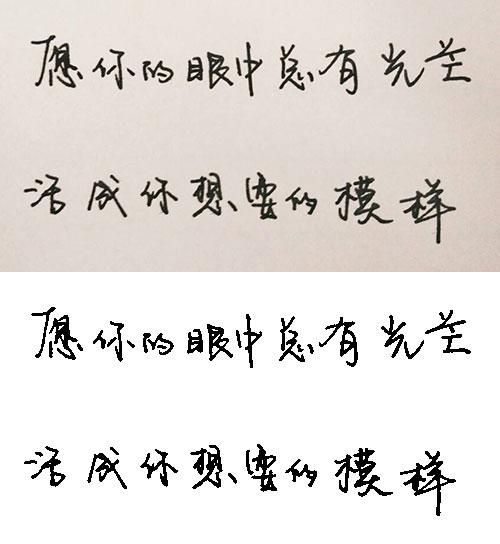 愿你的眼中总有光芒
活成你想要的模样
愿你的眼中总有光芒
活成你想要的模样